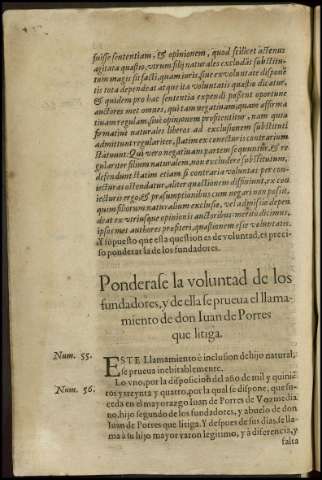 fuisse sententiam, & opinionem, quod scilicet actenus
agitata quæstio, vtrum filij naturales excludãt substitu-
tum magis sit facti, quam iuris, siue ex voluntate disponẽ
tis tota dependeat atque ita voluntatis quæstio dicatur,
& quidem pro hac sententia expendi possent oportune
auctores met omnes, quotquot negatiuam, quam affirma
tiuam regulam, siue opinionem profitentur, nam qui a
firmatiuè naturales liberos ad exclusionem substituti
admittunt regulariter, statim ex coniecturis contrarium
statuunt. Qui vero negatiuam partem sequuntur, & re
gulariter filium naturalem, non excludere substitutum,
defendunt statim etiam si contraria voluntas per con-
iecturas ostendatur, aliter quæstionem diffiniunt, ex con
iecturis ergo, & præsumptionibus cum negari non possit,
quin filiorum naturalium exclusio, vel admissio depen
deat ex vtriusque opinionis auctoribus merito dicimus,
ipsosmet auctores profiteri, quæstionem esse voluntatis.
Y supuesto que esta question es de voluntad, es preci-
so ponderar la de los fundadores.
Ponderase la voluntad de los
fundadores, y de ella se prueua el llama-
miento de don Iuan de Porres
que litiga.
Num. 55.
ESTE Llamamiento è inclusion de hijo natural,
se prueua ineuitablemente.
Num. 56.
Lo vno, por la disposicion del año de mil y quiniẽ
tos y treynta y quatro, por la qual se dispone, que su-
ceda en el mayorazgo Iuan de Porres de Vozmedia
no, hijo segundo de los fundadores, y abuelo de don
Iuan de Porres que litiga. Y despues de sus dias, se lla-
ma à su hijo mayor varon legitimo, y à diferencia, y
falta